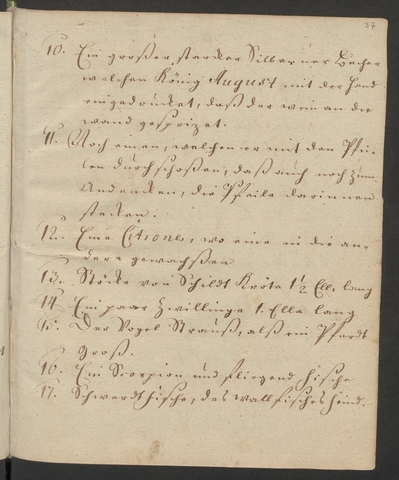 27
10. Ein großer starcker Silberner Becher
welchen König August mit der Hand
eingedrücket, daß der wein an die
wand gesprizet.
11. Noch einen, welchen er mit den Pfei-
len durchschoßen, daß auch noch zum
Andencken, die Pfeile darinnen
stecken.
12. Eine Citrone, wo eine in die an-
dere gewachßen
13. Stöcke von Schildt Kröte 1½ Ell. lang
14. Ein paar Zwillinge 1. Elle lang
15. Der Vogel Strauß, alß ein Pferdt
groß.
16. Ein Scorpion und fliegend fische
17. Schwerdt fische, des wallfisches feind.